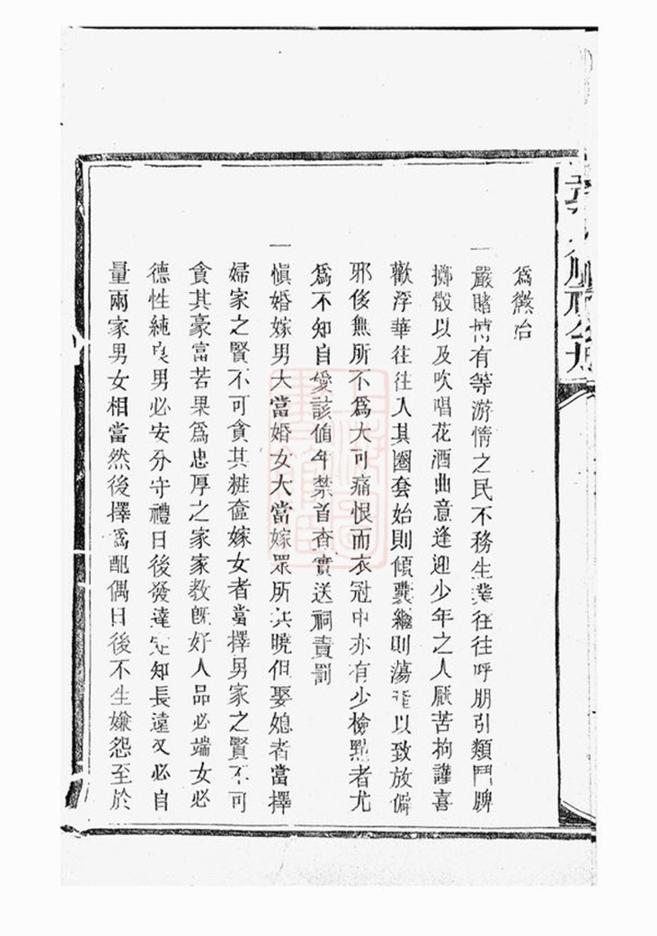 爲懲治
一嚴賭博有等游惰之民不務生業往往呼朋引類鬥牌
擲骰以及吹唱花酒曲意逢迎少年之人厭苦拘謹喜
歡浮華往往入其圈套始則傾囊繼則蕩產以致放僻
邪侈無所不爲大可痛恨而衣冠中亦有少檢點者尤
爲不知自愛該値年禁首查實送祠責罰
一愼婚嫁男大當婚女大當嫁眾所共曉但娶媳者當擇
婦家之賢不可貪其粧奩嫁女者當擇男家之賢不可
貪其豪富若果爲忠厚之家家教旣好人品必端女必
德性純良男必安分守禮日後發達定知長遠又必自
量兩家男女相當然後擇爲配偶日後不生嫌怨至於